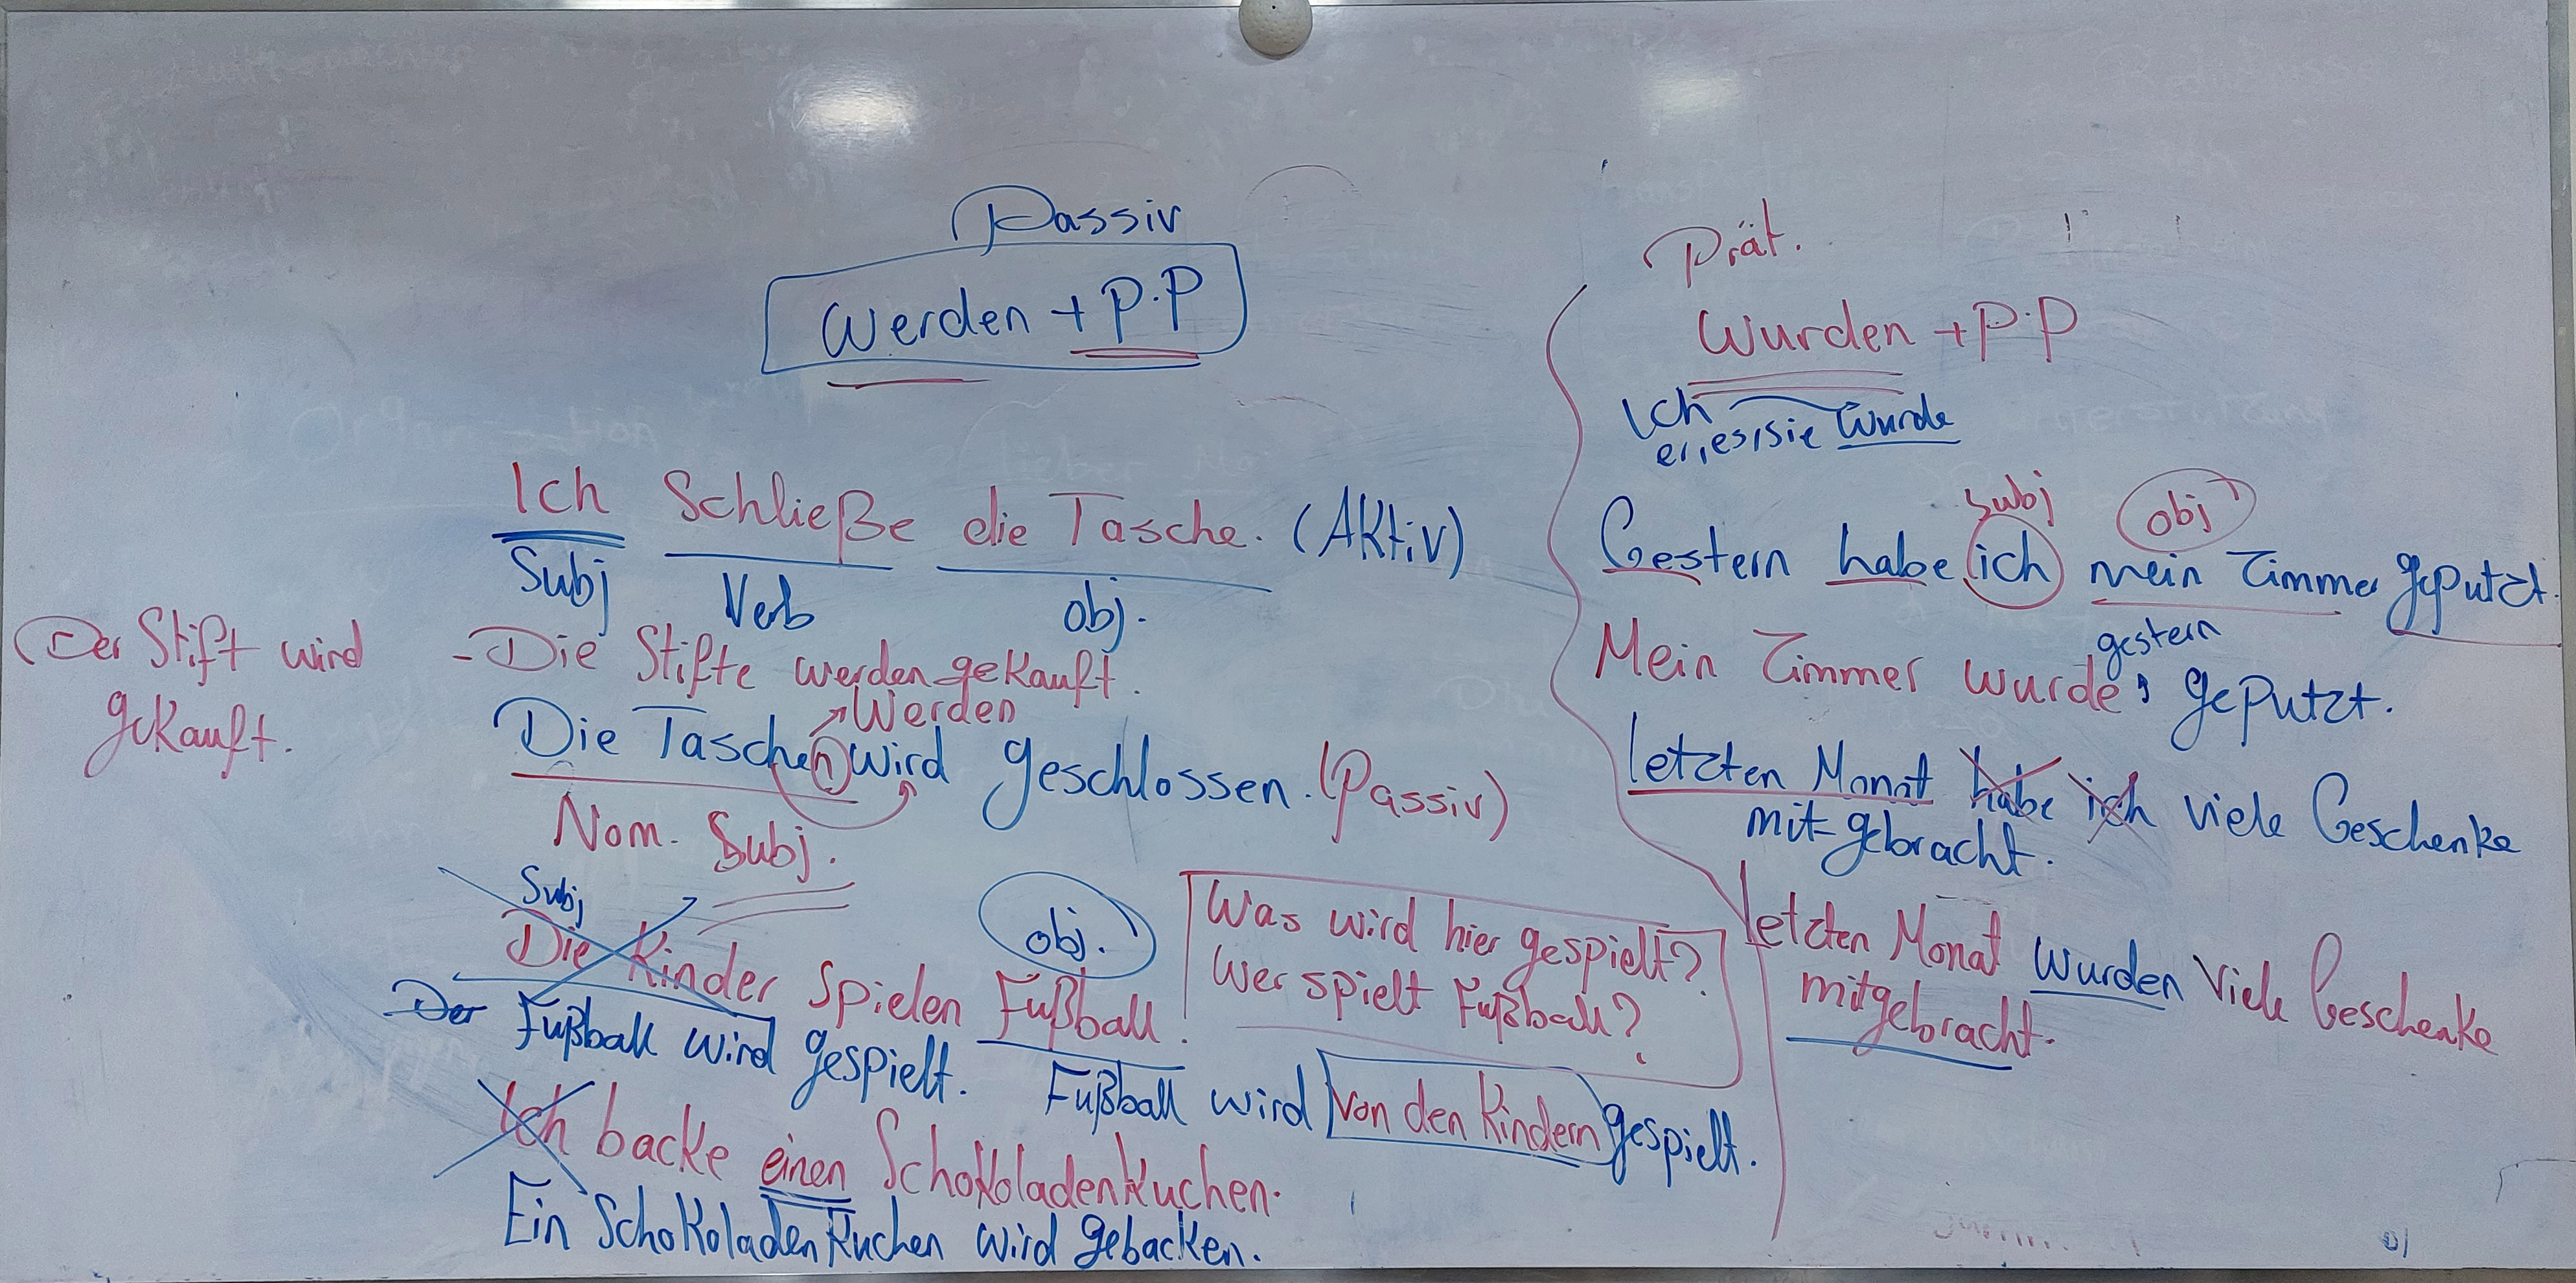 Passiv
Werden + P.P
Ich Schließe die Tasche. (Aktiv)
Subj Verb obj.
Der Stift wird
gekauft.
- Die Stifte werden gekauft.
Werden
Die Taschen wird geschlossen. (Passiv)
Nom. Subj.
Subj
obj.
Die Kinder spielen Fußball.
Was wird hier gespielt?
Wer spielt Fußball?
Der Fußball wird gespielt.
Fußball wird von den Kindern gespielt.
Ich backe einen Schokoladenkuchen.
Ein Schokoladenkuchen wird gebacken.
Prät.
Wurden + P.P
Ich
er, es, sie wurde
subj obj
Gestern habe ich mein Zimmer geputzt.
gestern
Mein Zimmer wurde, geputzt.
letzten Monat habe ich viele Geschenke
mitgebracht.
letzten Monat wurden viele Geschenke
mitgebracht.